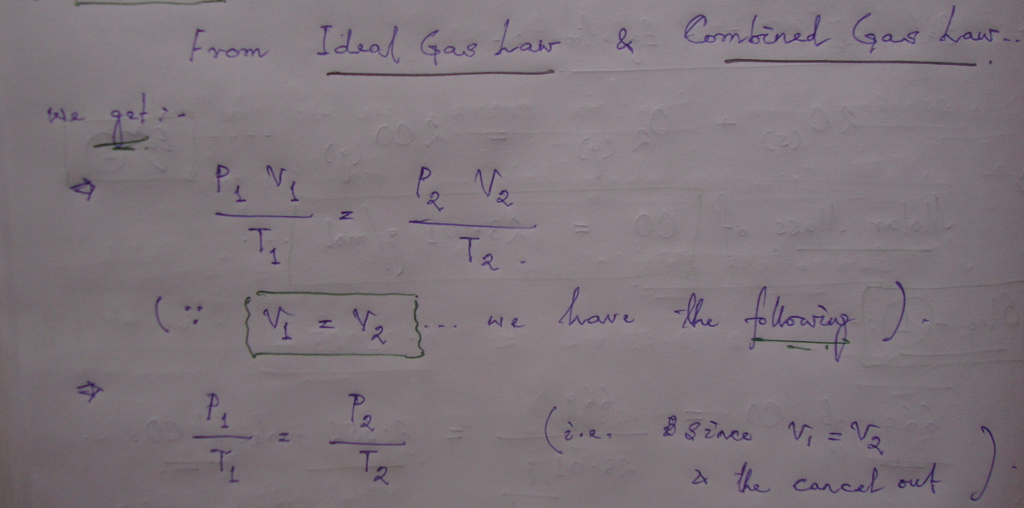 From Ideal Gas Law & Combined Gas Law..
we get :-
⇒ P₁ V₁ / T₁ = P₂ V₂ / T₂ .
( ∵ V₁ = V₂ ... we have the following ) .
⇒ P₁ / T₁ = P₂ / T₂ ( i.e. since V₁ = V₂
& the cancel out ) .